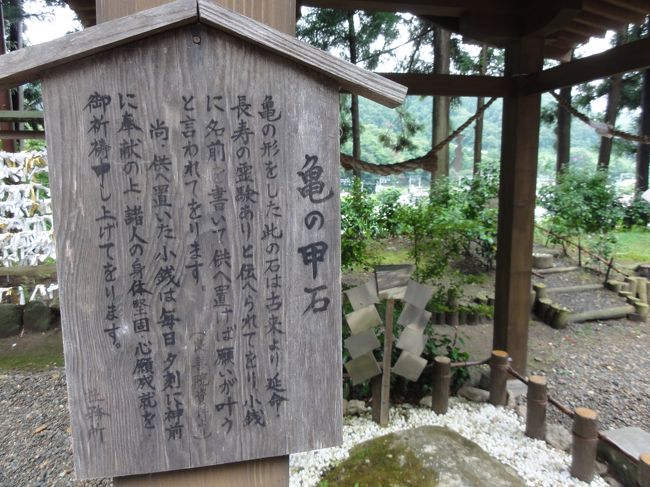 亀の甲石
亀の形をした此の石は古来より延命
長寿の霊験ありと伝へられてをり小銭
に名前を書いて供へ置けば願いが叶う
と言われてをります。
尚、供へ置いた小銭は毎日夕刻に神前
に奉献の上、諸人の身体堅固心願成就を
御祈祷申し上げてをります。
社務所